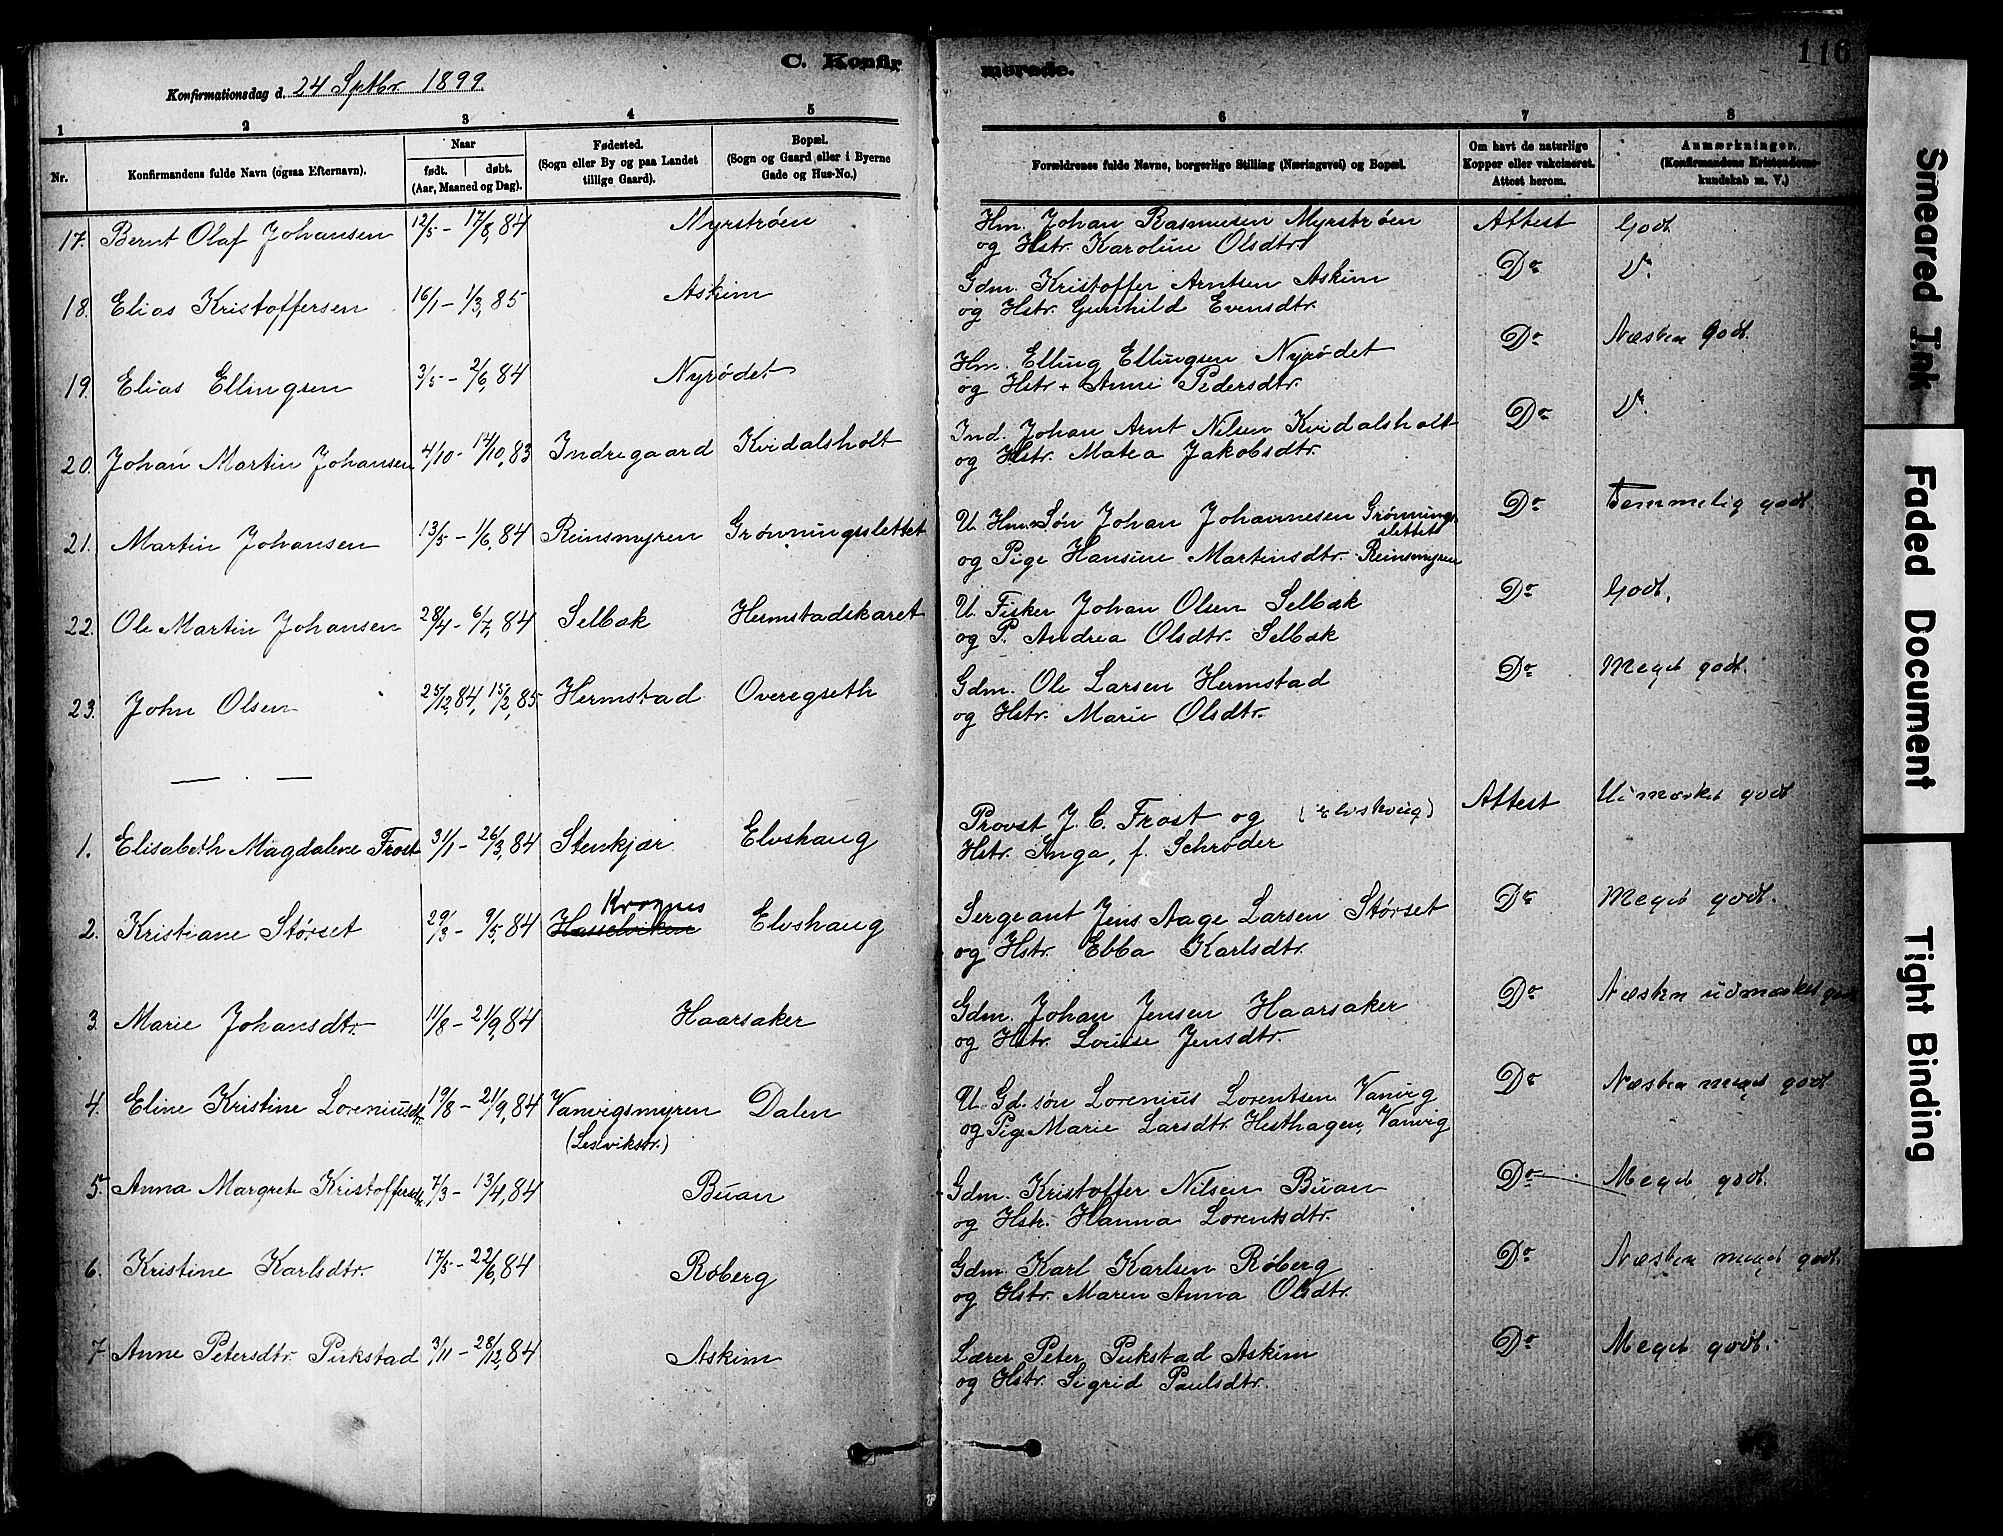 C. Konfir
merede.
116
Konfirmationsdag d. 24 Septbr. 1899.
1 2 3 4 5 6 7 8
Nr.
Konfirmandens fulde Navn (ogsaa Efternavn).
Naar
født. døbt.
(Aar, Maaned og Dag).
Fødested.
(Sogn eller By og paa Landet
tillige Gaard).
Bopæl.
(Sogn og Gaard eller i Byerne
Gade og Hus-No.)
Forældrenes fulde Navne, borgerlige Stilling (Næringsvei) og Bopæl.
Om havt de naturlige
Kopper eller vakcineret.
Attest herom.
Anmærkninger.
(Konfirmandens Kristendoms-
kundskab m. V.)
17. Bernt Olaf Johansen 12/5 - 17/8, 84 Myrstrøen Hm. Johan Rasmusen Myrstrøen Attest Godt
og Hstr. Karoline Olsdtr.
18. Elias Kristoffersen 16/1 - 1/3, 85 Askim Gdm. Kristoffer Arntsen Askim Do
og Hstr. Gunhild Evensdtr.
19. Elias Ellingsen 3/5 - 2/6, 84 Nyrødet Hm. Elling Ellingsen Nyrødet Do Næsten Godt.
og Hstr + Anne Pedersdtr.
20. Johan Martin Johansen 4/10 - 14/10, 83 Indregaard Kvidalsholt Ind. Johan Arnt Nilsen Kvidalsholt Do
og Hstr. Matea Jakobsdtr.
21. Martin Johansen 13/5 - 1/6, 84 Reinsmyren Grønningsslettet U. Hm. Søn Johan Johannesen Grønnings- Do Temmelig godt.
slettet
og Pige Hansine Martinsdtr. Reinsmyren
22. Ole Martin Johansen 28/4 - 6/7, 84 Selbæk Hermstadskaret U. Fisker Johan Olsen Selbæk Do Godt.
og P. Andrea Olsdtr. Selbæk
23. John Olsen 25/12, 84, 15/2, 85 Hermstad Overegseth Gdm. Ole Larsen Hermstad Do Meget godt.
og Hstr. Marie Olsdtr.
— . —
1. Elisabeth Magdalene Frost 31/1 - 26/3, 84 Stenkjær Elvshaug Provst J. C. Frost og (Elvshaug) Attest Udmærket godt
Hstr. Inga, f. Schrøder
Krognes
2. Kristiane Størset 29/3 - 9/5, 84 Hasselviken Elvshaug Sergeant Jens Aage Larsen Størset Do Meget godt.
og Hstr. Ebba Karlsdtr.
3. Marie Johansdtr. 11/8 - 21/9, 84 Haarsaker Gdm. Johan Jensen Haarsaker Do Næsten udmærket godt
og Hstr. Louise Jensdtr.
4. Eline Kristine Loreniusdtr. 19/8 - 21/9, 84 Vanvigsmyren Dalen U. Gd. søn Lorenius Lorentsen Vanvig Do Næsten meget godt
(Lesvikstr.) og Pige Marie Larsdtr. Hesthagen, Vanvig
5. Anna Margrete Kristoffersdtr. 7/3 - 13/4, 84 Buan Gdm. Kristoffer Nilsen Buan Do Meget godt.
og Hstr. Hanna Lorentsdtr.
6. Kristine Karlsdtr. 17/5 - 22/6, 84 Røberg Gdm. Karl Karlsen Røberg Do Næsten meget godt.
og Hstr. Maren Anna Olsdtr.
7. Anne Petersdtr. Pukstad 3/11 - 28/12, 84 Askim Lærer Peter Pukstad Askim Do Meget godt.
og Hstr. Sigrid Paulsdtr.
Smeared Ink
Faded Document
Tight Binding